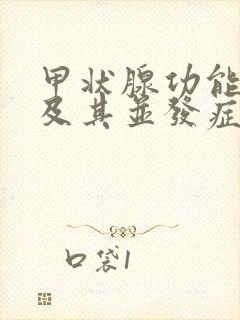 甲状腺功能
及其並發症
口袋1